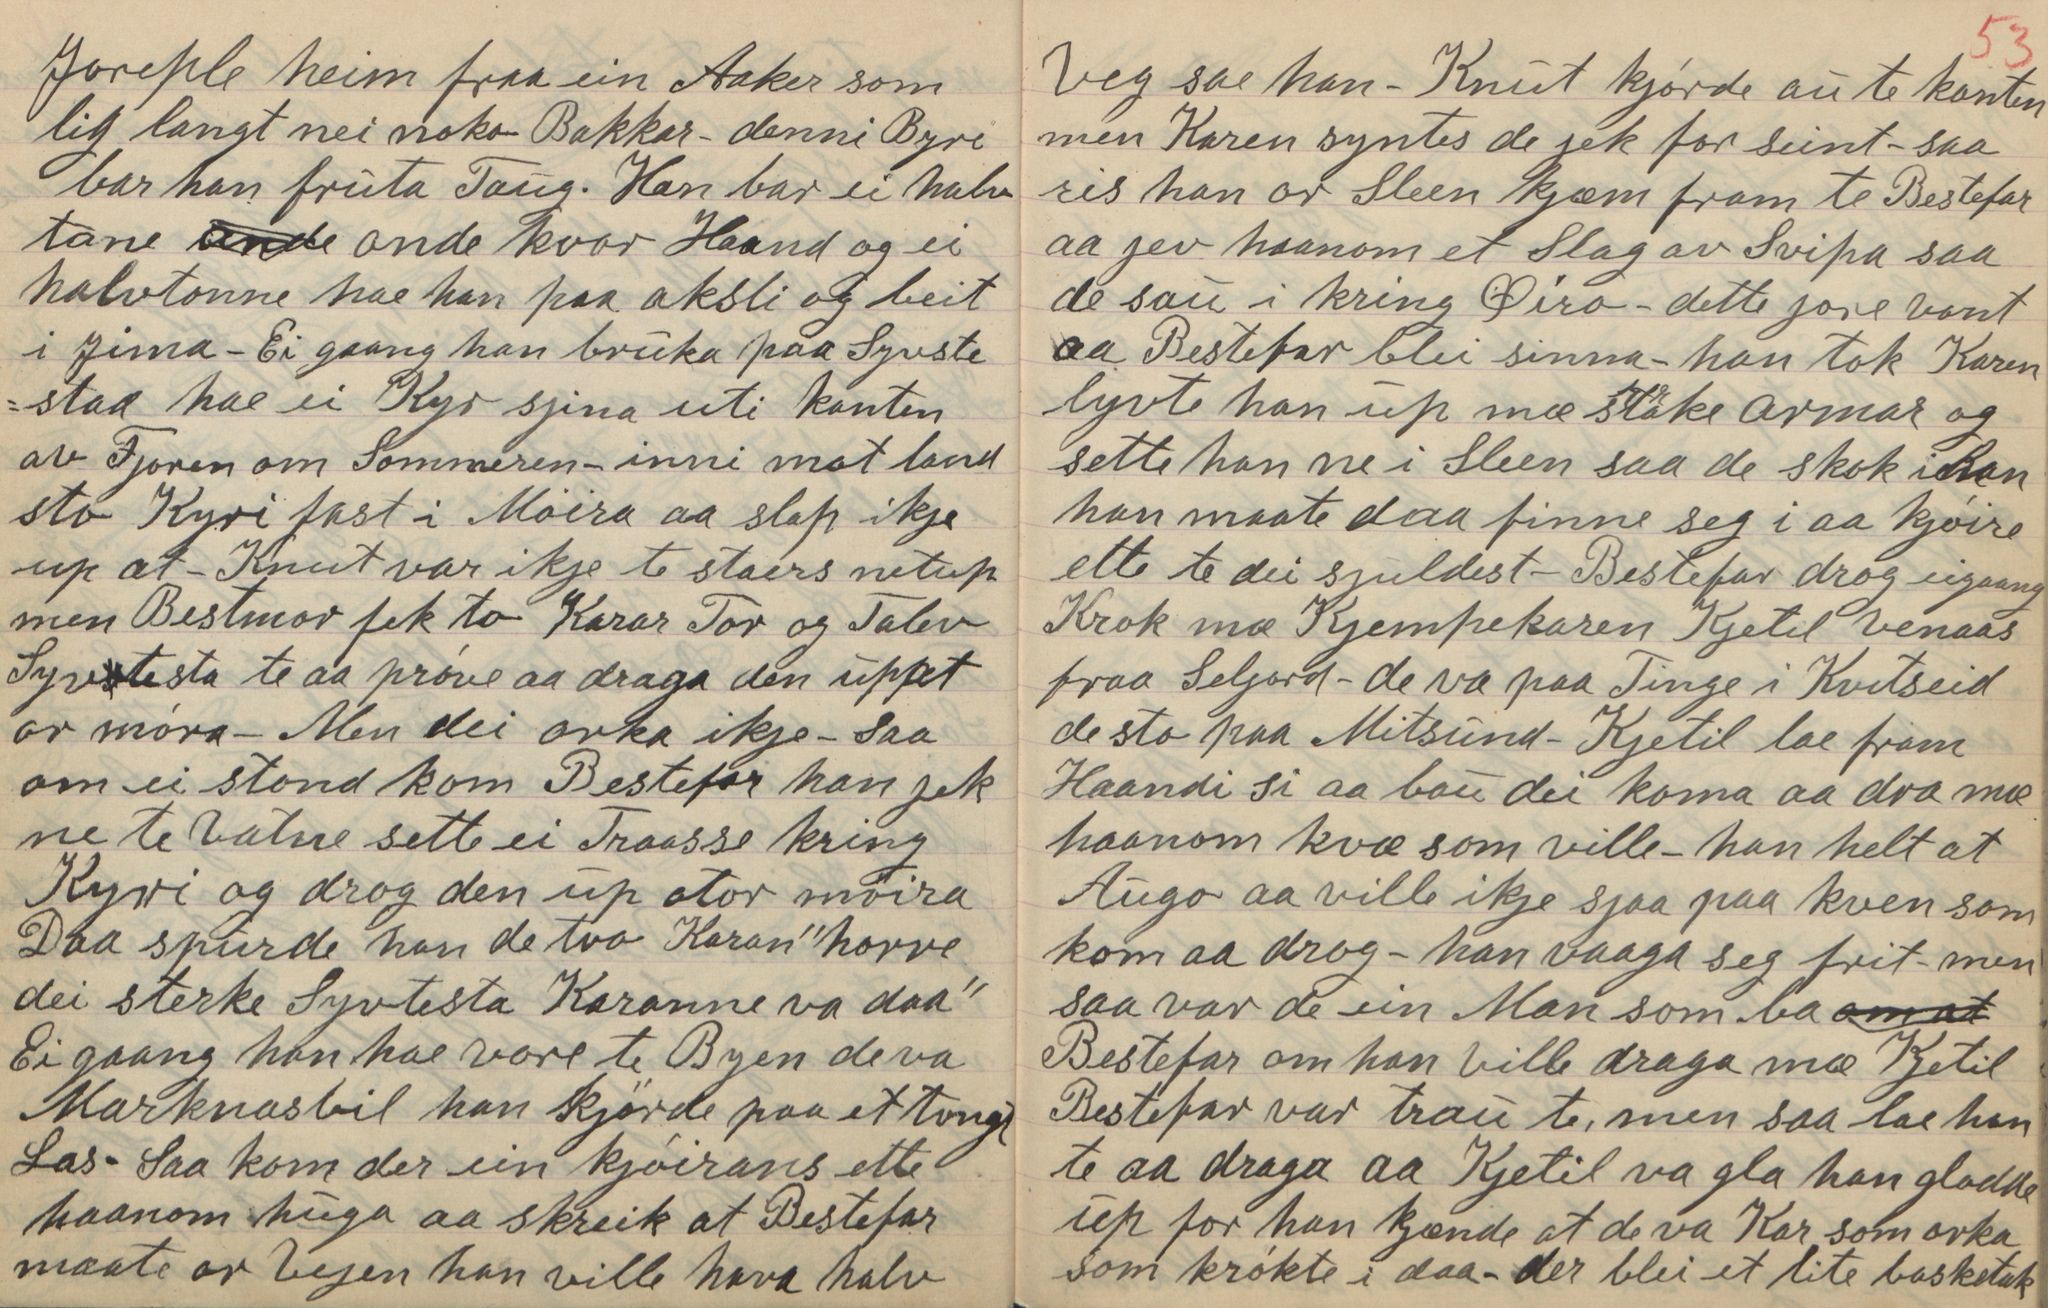 Joreple heim fraa ein Aaker som
lig langt nei noko Bakkar - denni Byri
bar han fruta Taug. Han bar ei halv
tøne ande onde kvor Haand og ei
halvtonne hae han paa aksli og beit
i Jima - Ei gaang han bruka paa Syvste
=staa hae ei Kyr sjina uti kanten
av Fjoren om Sommeren - inni mot land
sto Kyri fast i Möira aa slap ikje
up at - Knut var ikje te staers netup
men Bestmor fek to Karar Tor og Talev
Syvtesta te aa pröve aa draga den uppet
or möra - Men dei orka ikje - saa
om ei stond kom Bestefar han jek
ne te Vatne sette ei Traasse kring
Kyri og drog den up otor möira
Daa spurde han de tvo Karan "horre
dei sterke Syvtesta Karanne va daa"
Ei gaang han hae vore te Byen de va
Marknasbil han kjörde paa et tongt
Las - Saa kom der ein kjöirans ette
haanom huga aa skreik at Bestefar
maate or Vejen han ville hava halv
53
Veg sae han - Knut kjörde au te kanten
men Karen syntes de jek for seint - saa
ris han or Sleen kjæm fram te Bestefar
aa jev haanom et Slag av Svipa saa
de sau i kring Öiro - dette jore vont
aa Bestefar blei sinna - han tok Karen
lyvte han up mæ stærke Armar og
sette han ne i Sleen saa de skok i han
han maate daa finne seg i aa kjöire
ette te dei sjuldest - Bestefar drog eigaang
Krok mæ Kjempekaren Kjetil Venaas
fraa Seljord - de va paa Tinge i Kvitseid
de sto paa Mitsund - Kjetil lae fram
Haandi si aa bau dei koma aa dra mæ
haanom kvæ som ville - han helt at
Augo aa ville ikje sjaa paa kven som
kom aa drog - han vaaga seg frit - men
saa var de ein Man som ba om at
Bestefar om han ville draga mæ Kjetil
Bestefar var trau te, men saa lae han
te aa draga aa Kjetil va gla han gladde
up for han kjænde at de va Kar som orka
som krökte i daa - der blei et lite basketak